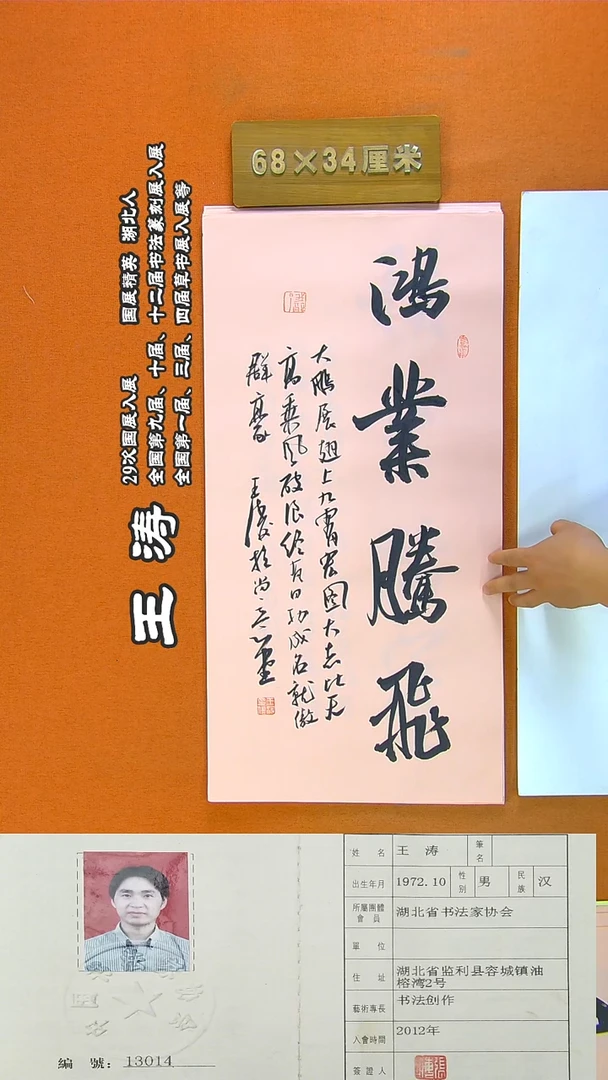 68×34厘米
鸿業騰飛
大鵬展翅上九霄宏图大志比天
高乘风破浪终有日功成名就傲
群豪
王涛
29次国展入展 国展精英 湖北人
全国第九届、十届、十二届书法篆刻展入展
全国第一届、三届、四届草书展入展等
編 號：13014
姓 名 王 涛 筆名
出生年月 1972.10 性别 男 民族 汉
所屬團體會員 湖北省书法家协会
單 位
住 址 湖北省监利县容城镇油
榕湾2号
藝術專長 书法创作
入會時間 2012年
簽證人